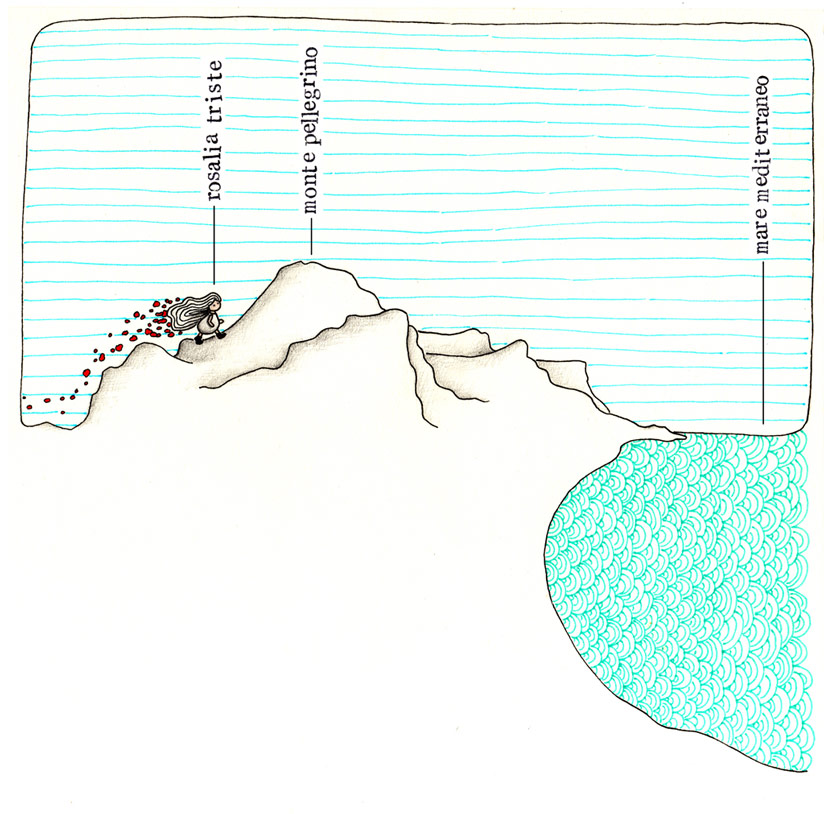 rosalia triste
monte pellegrino
mare mediterraneo